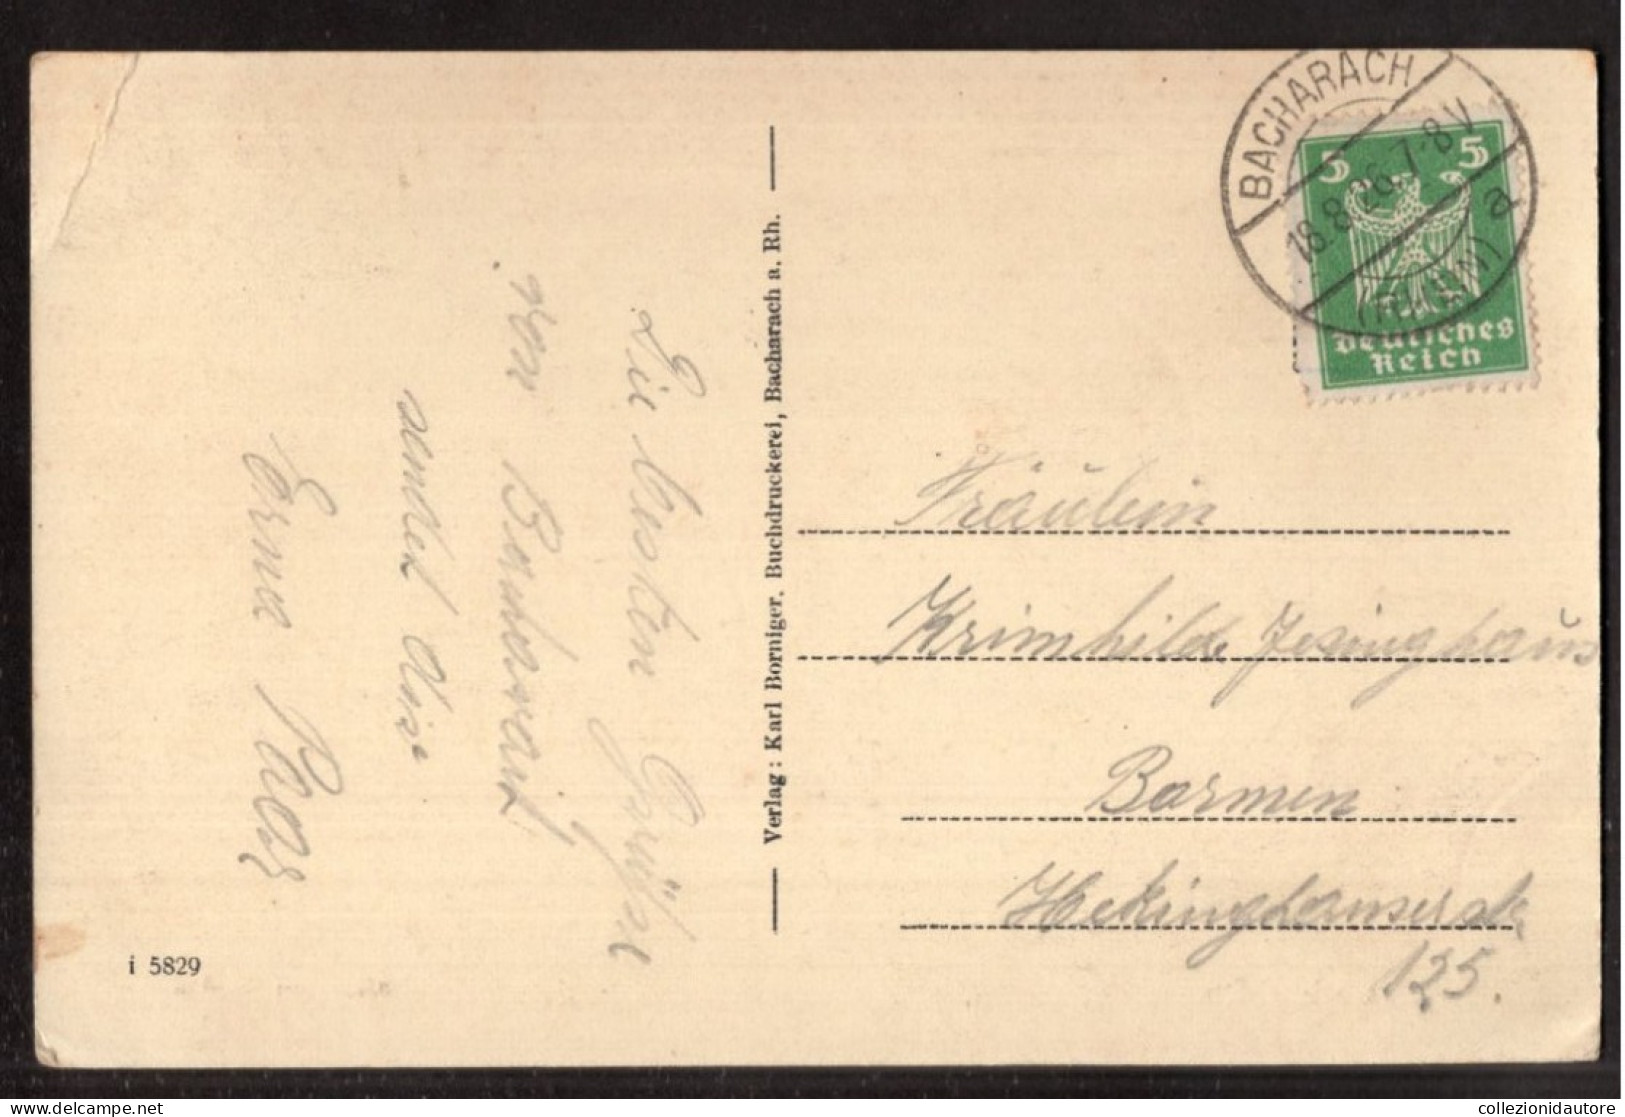 Die besten Grüße
von Bacharach
sendet dir
Erna
i 5829
Verlag: Karl Borniger, Buchdruckerei, Bacharach a. Rh.
BACHARACH
18.8.26.7-8V
a
(RHEIN)
5 5
Deutsches
Reich
Fräulein
Krimhilde Jesinghaus
Barmen
Hekinghauserstr.
125.
collezionidautore